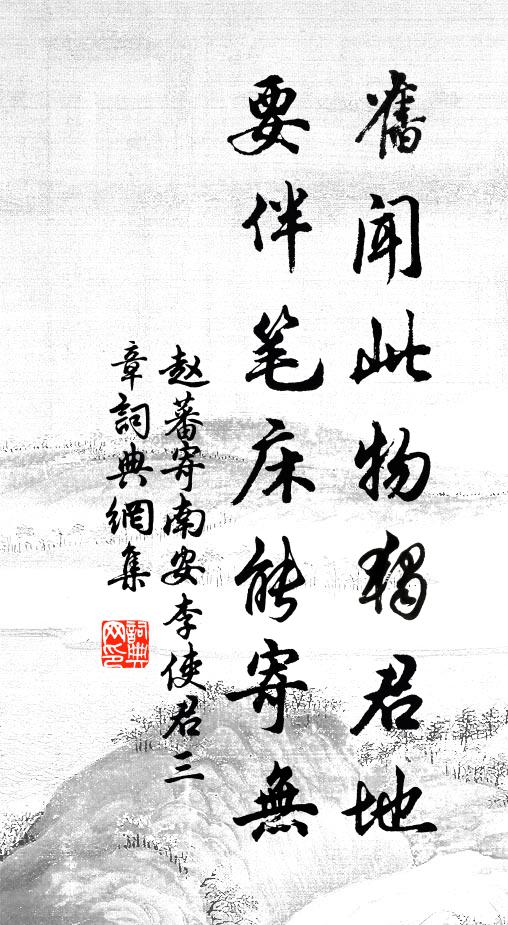 舊闻此物獨君地
要伴笔床能寄無
赵蕃寄南安李使君三
章詞典網集
詞典
网印